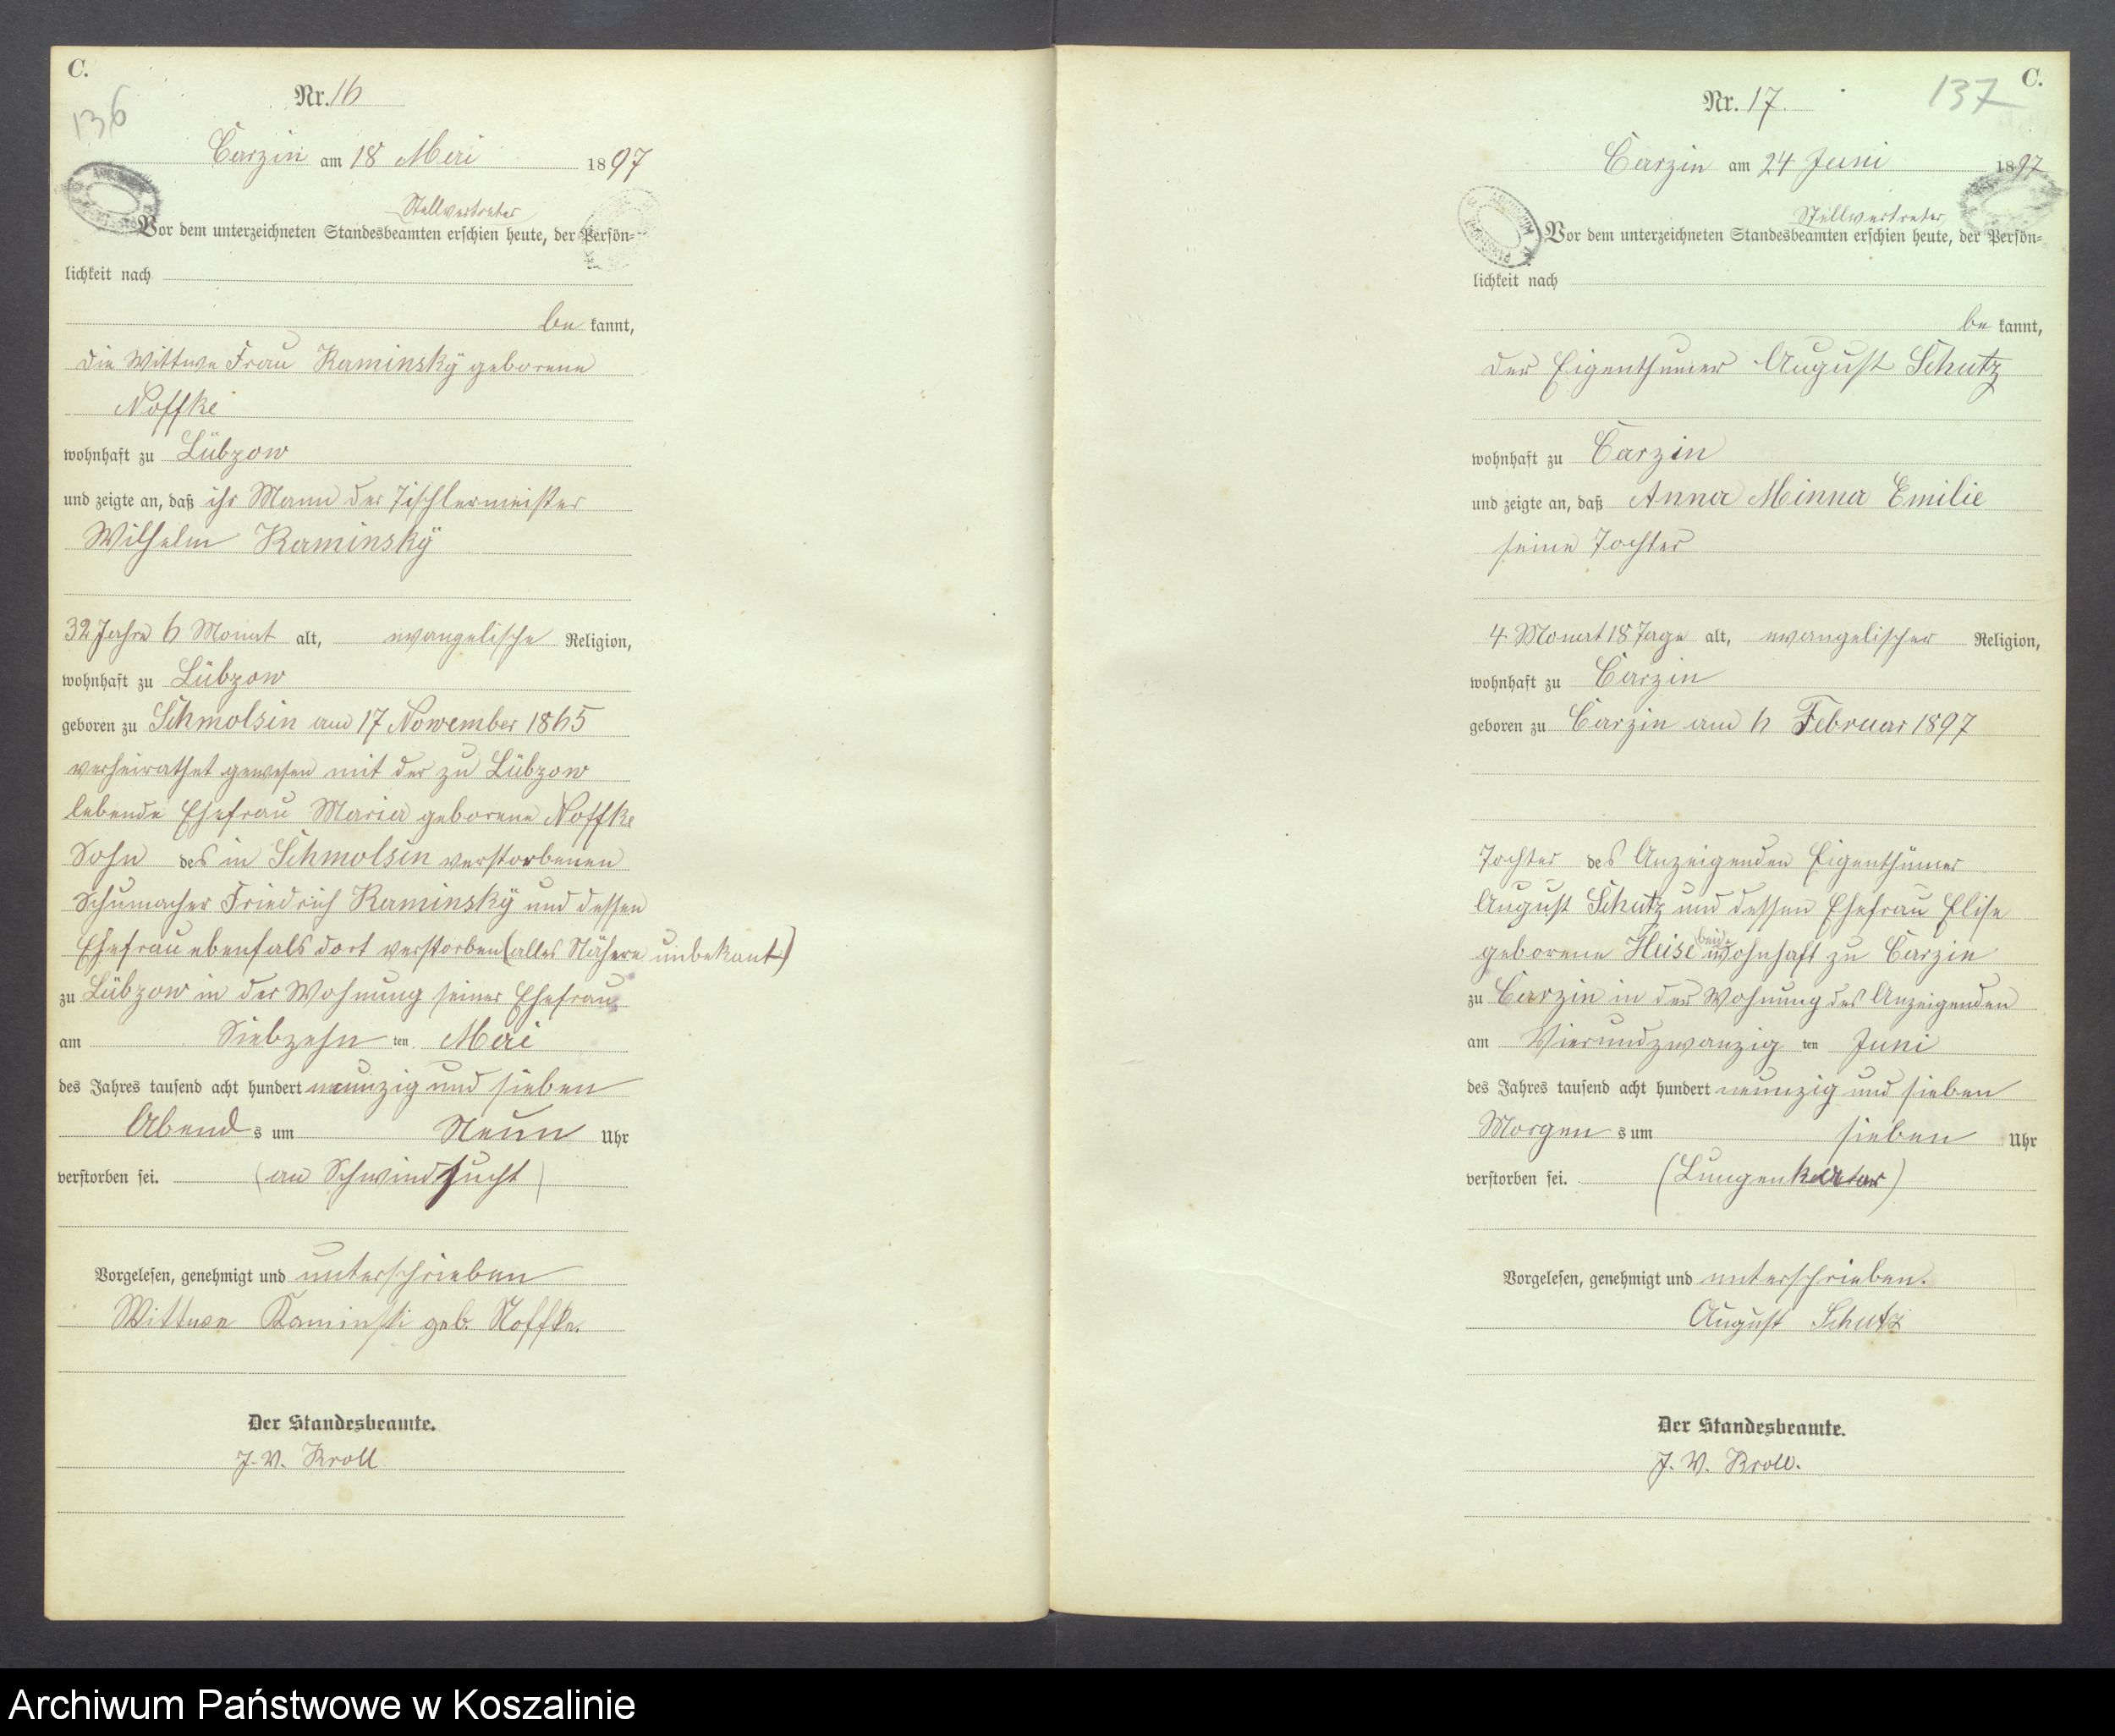 C.
136
Nr. 16
Carzin am 18 Mai 1897
Stellvertreter
Vor dem unterzeichneten Standesbeamten erschien heute, der Persön-
lichkeit nach
be kannt,
die Wittwe Frau Kaminskÿ geborene
Noffke
wohnhaft zu Lübzow
und zeigte an, daß ihr Mann der Tischlermeister
Wilhelm Kaminskÿ
32 Jahre 6 Monat alt, evangelische Religion,
wohnhaft zu Lübzow
geboren zu Schmolsin am 17 November 1865
verheirathet gewesen mit der zu Lübzow
lebende Ehefrau Maria geborene Noffke
Sohn des in Schmolsin verstorbenen
Schumacher Friedrich Kaminskÿ und dessen
Ehefrau ebenfals dort verstorben (alles Nähere unbekant)
zu Lübzow in der Wohnung seiner Ehefrau
am Siebzehn ten Mai
des Jahres tausend acht hundert neunzig und sieben
Abend s um Neun Uhr
verstorben sei. (an Schwindsucht)
Vorgelesen, genehmigt und unterschrieben
Wittwe Kaminski geb. Noffke.
Der Standesbeamte.
J. V. Kroll
C.
137
Nr. 17.
Carzin am 24 Juni 1897
Stellvertreter
Vor dem unterzeichneten Standesbeamten erschien heute, der Persön-
lichkeit nach
be kannt,
der Eigenthümer August Schutz
wohnhaft zu Carzin
und zeigte an, daß Anna Minna Emilie
seine Tochter
4 Monat 18 Tage alt, evangelischer Religion,
wohnhaft zu Carzin
geboren zu Carzin am 6 Februar 1897
Tochter des Anzeigenden Eigenthümer
August Schutz und dessen Ehefrau Elise
geborene Heise (beide wohnhaft zu Carzin
zu Carzin in der Wohnung des Anzeigenden
am Vierundzwanzig ten Juni
des Jahres tausend acht hundert neunzig und sieben
Morgen s um sieben Uhr
verstorben sei. (Lungenkatar)
Vorgelesen, genehmigt und unterschrieben.
August Schutz
Der Standesbeamte.
J. V. Kroll.
Archiwum Państwowe w Koszalinie